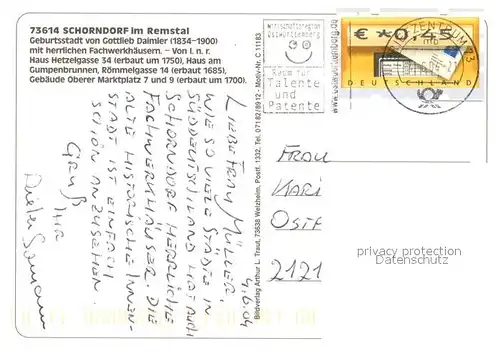 73614 SCHORNDORF im Remstal
Geburtsstadt von Gottlieb Daimler (1834–1900)
mit herrlichen Fachwerkhäusern. – Von l. n. r.
Haus Hetzelgasse 34 (erbaut um 1750), Haus am
Gumpenbrunnen, Römmelgasse 14 (erbaut 1685),
Gebäude Oberer Marktplatz 7 und 9 (erbaut um 1700).
4.6.04
LIEBE FRAU MÜLLER,
WIE SO VIELE STÄDTE IN
SÜDDEUTSCHLAND HAT AUCH
SCHORNDORF HERRLICHE
FACHWERKHÄUSER. DIE
ALTE HISTORISCHE INNEN-
STADT IST EINFACH
SCHÖN ANZUSEHEN.
GRUß
IHR
Dieter
Bildverlag Arthur L. Traut, 73638 Welzheim, Postf. 1332, Tel. 07182/8912 - Motiv-Nr. C 11183
Wirtschaftsregion
Ostwürttemberg
Raum für
Talente
und
Patente
www.ostwuerttemberg.de
BRIEFZENTRUM 73
€*0,45
DEUTSCHLAND
FRAU
KARI
OSTF
2121
privacy protection
reklameschilder.de